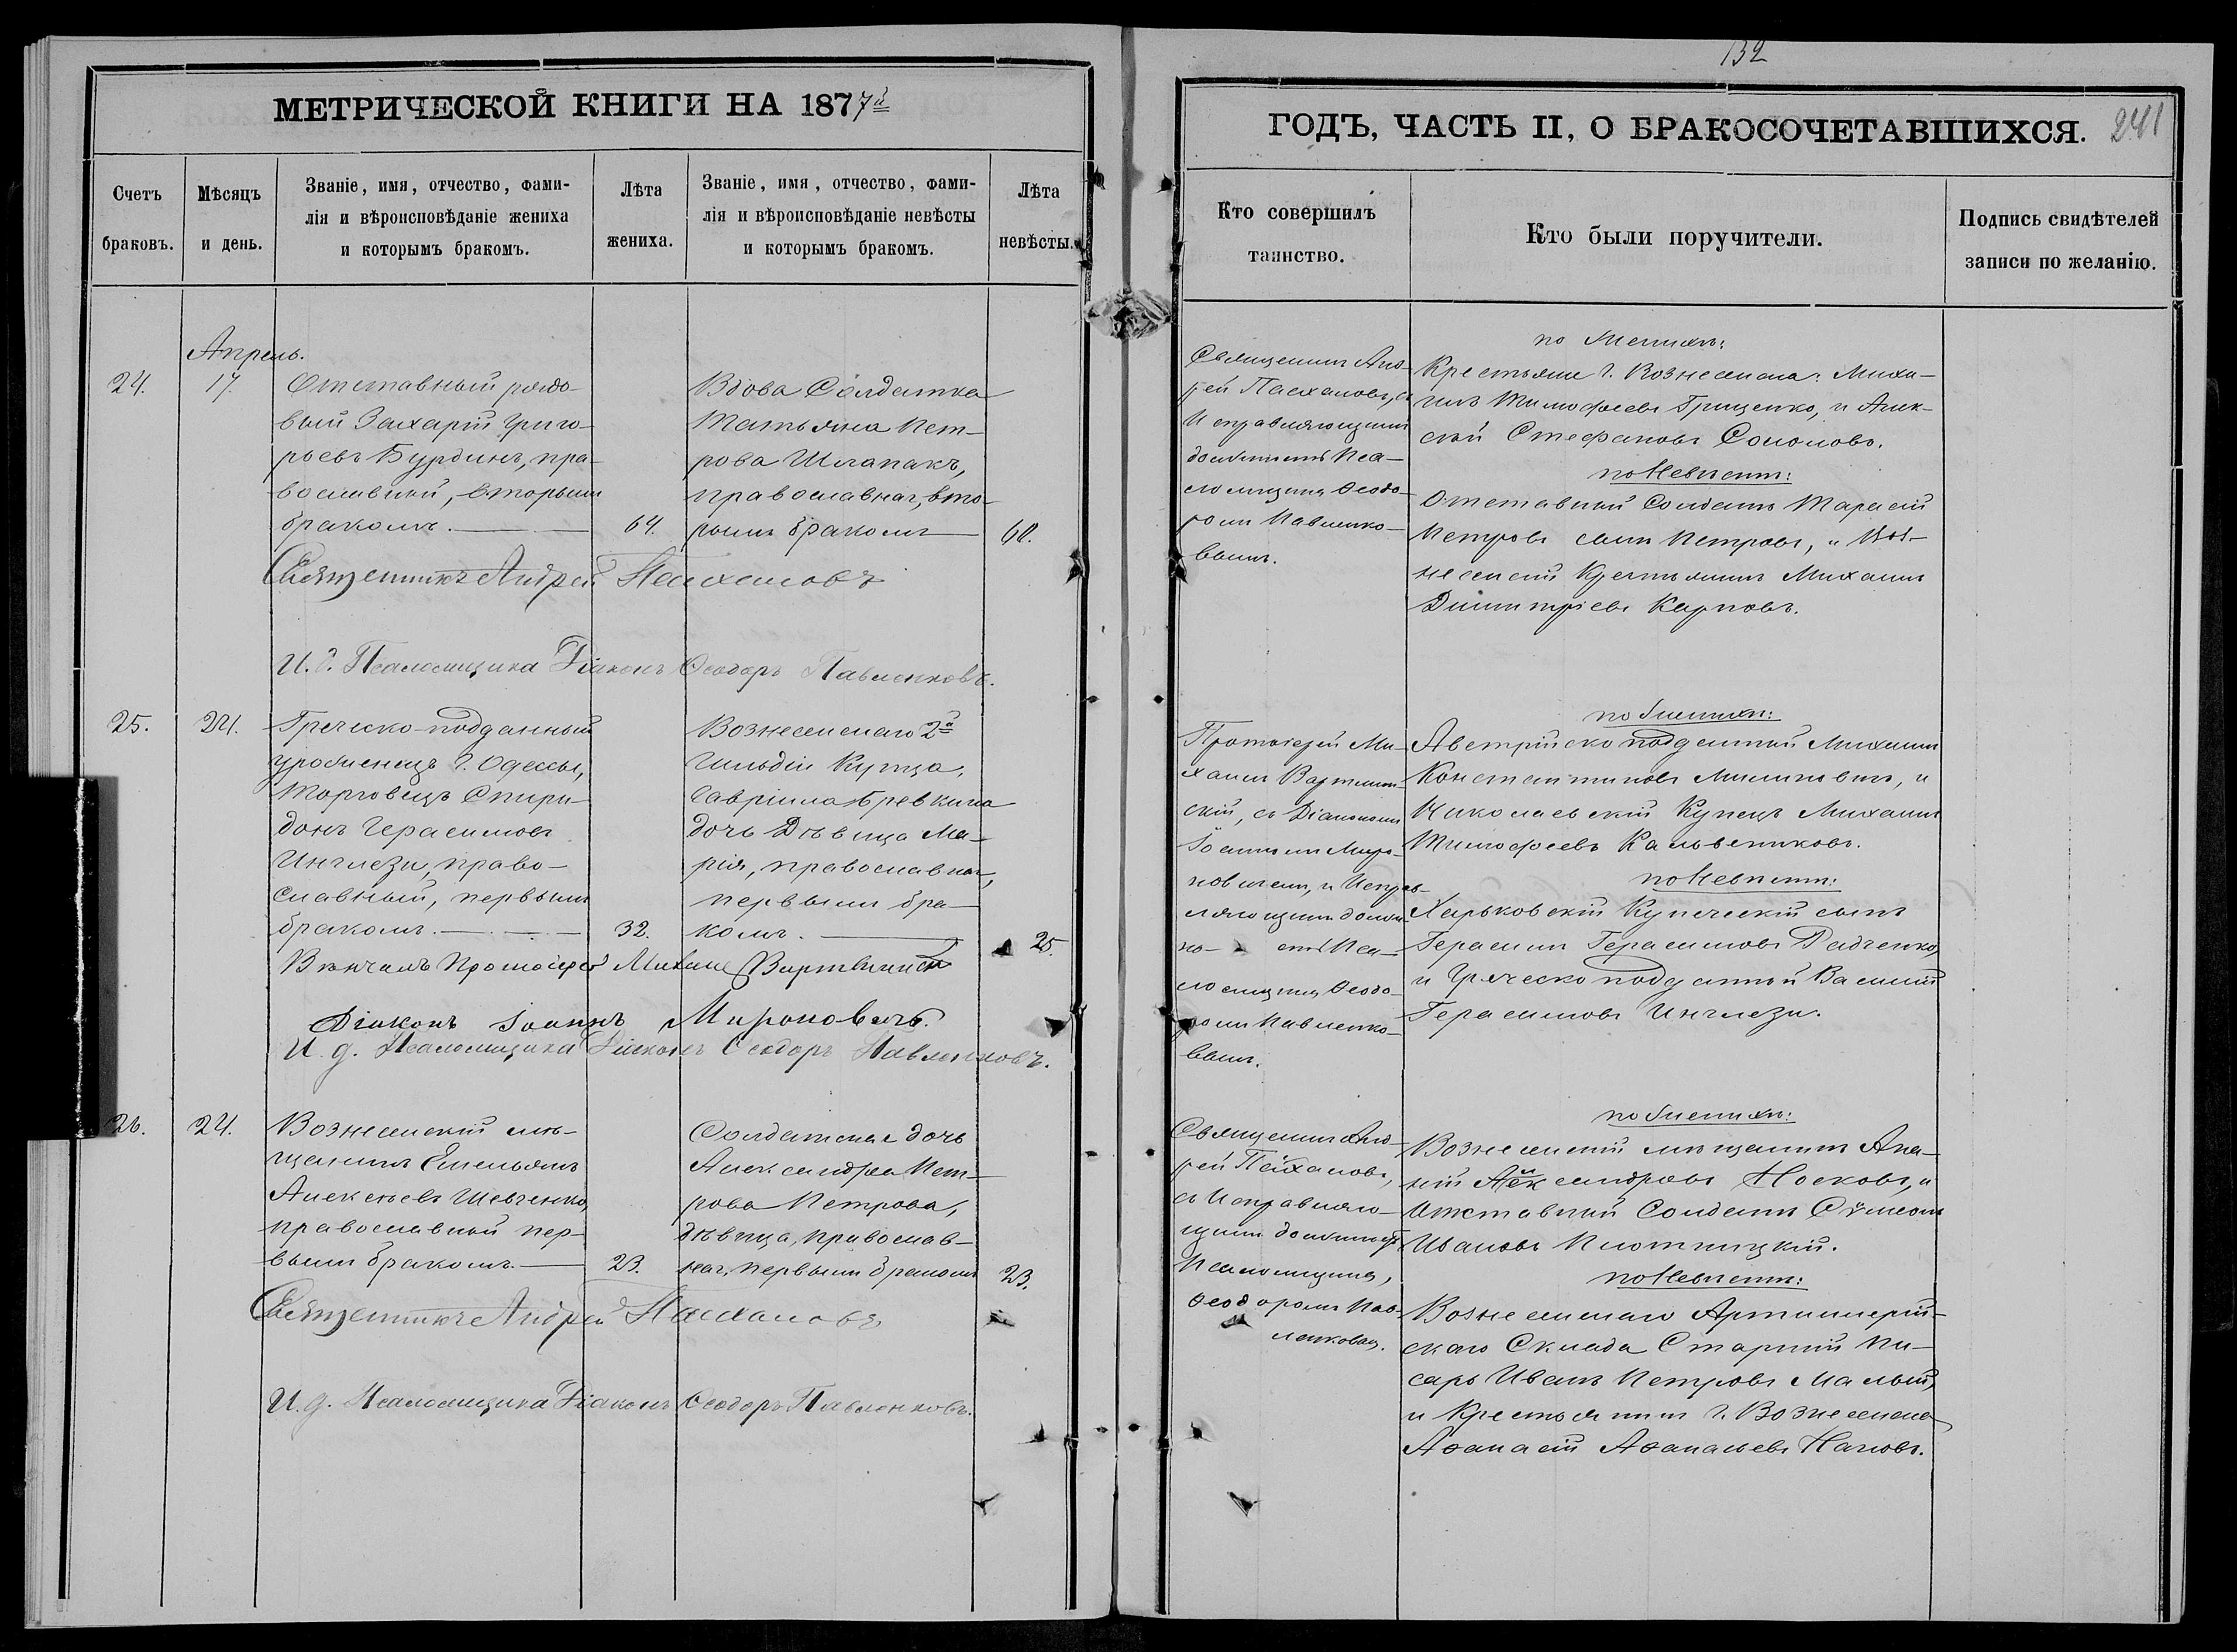 132
МЕТРИЧЕСКОЙ КНИГИ НА 1877й
ГОДЪ, ЧАСТЬ II, О БРАКОСОЧЕТАВШИХСЯ.
241
Счетъ
браковъ.
Мѣсяцъ
и день.
Званіе, имя, отчество, фами-
лія и вѣроисповѣданіе жениха
и которымъ бракомъ.
Лѣта
жениха.
Званіе, имя, отчество, фами-
лія и вѣроисповѣданіе невѣсты
и которымъ бракомъ.
Лѣта
невѣсты.
Кто совершилъ
таинство.
Кто были поручители.
Подпись свидѣтелей
записи по желанію.
Апрель.
24.
17.
Отставный рядо-
вый Захарій Григо-
рьевъ Бурдинъ, пра-
вославный, вторымъ
бракомъ.
64.
Вдова Солдатка
Татьяна Пет-
рова Шлапакъ,
православная, вто-
рымъ бракомъ
60.
Священникъ Анд-
рей Пасхаловъ, съ
Исправляющимъ
должность Пса-
ломщика Ѳеодо-
ромъ Павленко-
вымъ.
по Жениху:
Крестьяне г. Вознесенска: Миха-
илъ Тимофеевъ Грищенко, и Алек-
сѣй Стефановъ Соколовъ.
по Невѣстѣ:
Отставный Солдатъ Тарасій
Петровъ сынъ Петровъ, и Воз-
несенскій Крестьянинъ Михаилъ
Димитріевъ Карповъ.
Священникъ Андрей Пасхаловъ
И. д. Псаломщика Діаконъ Ѳеодоръ Павленковъ.
25.
24.
Греческо-подданный
уроженецъ г. Одессы,
Торговецъ Спири-
донъ Герасимовъ
Инглези, право-
славный, первымъ
бракомъ.
32.
Вознесенскаго 2й
Гильдіи Купца,
Гавріила Бревкина
дочь Дѣвица Ма-
рія, православная,
первымъ бра-
комъ.
25.
Протоіерей Ми-
хаилъ Вартмин-
скій, съ Діакономъ
Іоанномъ Миро-
новичемъ, и Исправ-
ляющимъ долж-
но- сть Пса-
ломщика Ѳеодо-
ромъ Павленко-
вымъ.
по Жениху:
Австрійско подданный Михаилъ
Константиновъ Милиновичъ, и
Николаевскій Купецъ Михаилъ
Тимофеевъ Кальвениковъ.
по Невѣстѣ:
Харьковскій Купеческій сынъ
Герасимъ Герасимовъ Дадченко,
и Греческо подданный Василій
Герасимовъ Инглези.
Вѣнчалъ Протоіерей Михаилъ Вартминскій
Діаконъ Іоаннъ Мироновичъ.
И. д. Псаломщика Діаконъ Ѳеодоръ Павленковъ.
26.
24.
Вознесенскій мѣ-
щанинъ Емельянъ
Алексѣевъ Шевченко,
православный пер-
вымъ бракомъ.
23.
Солдатская дочь
Александра Пет-
рова Петрова,
дѣвица, православ-
ная, первымъ бракомъ
23.
Священникъ Анд-
рей Пасхаловъ,
съ Исправляю-
щимъ должность
Псаломщика,
Ѳеодоромъ Пав-
ленковымъ.
по Жениху:
Вознесенскій мѣщанинъ Ана-
ній Александровъ Носковъ, и
Отставный Солдатъ Сѵмеонъ
Ивановъ Плотницкій.
по Невѣстѣ:
Вознесенскаго Артиллерій-
скаго Склада Старшій Пи-
сарь Иванъ Петровъ Малый,
и Крестьянинъ г. Вознесенска
Аѳанасій Аѳанасьевъ Наговъ.
Священникъ Андрей Пасхаловъ
И. д. Псаломщика Діаконъ Ѳеодоръ Павленковъ.